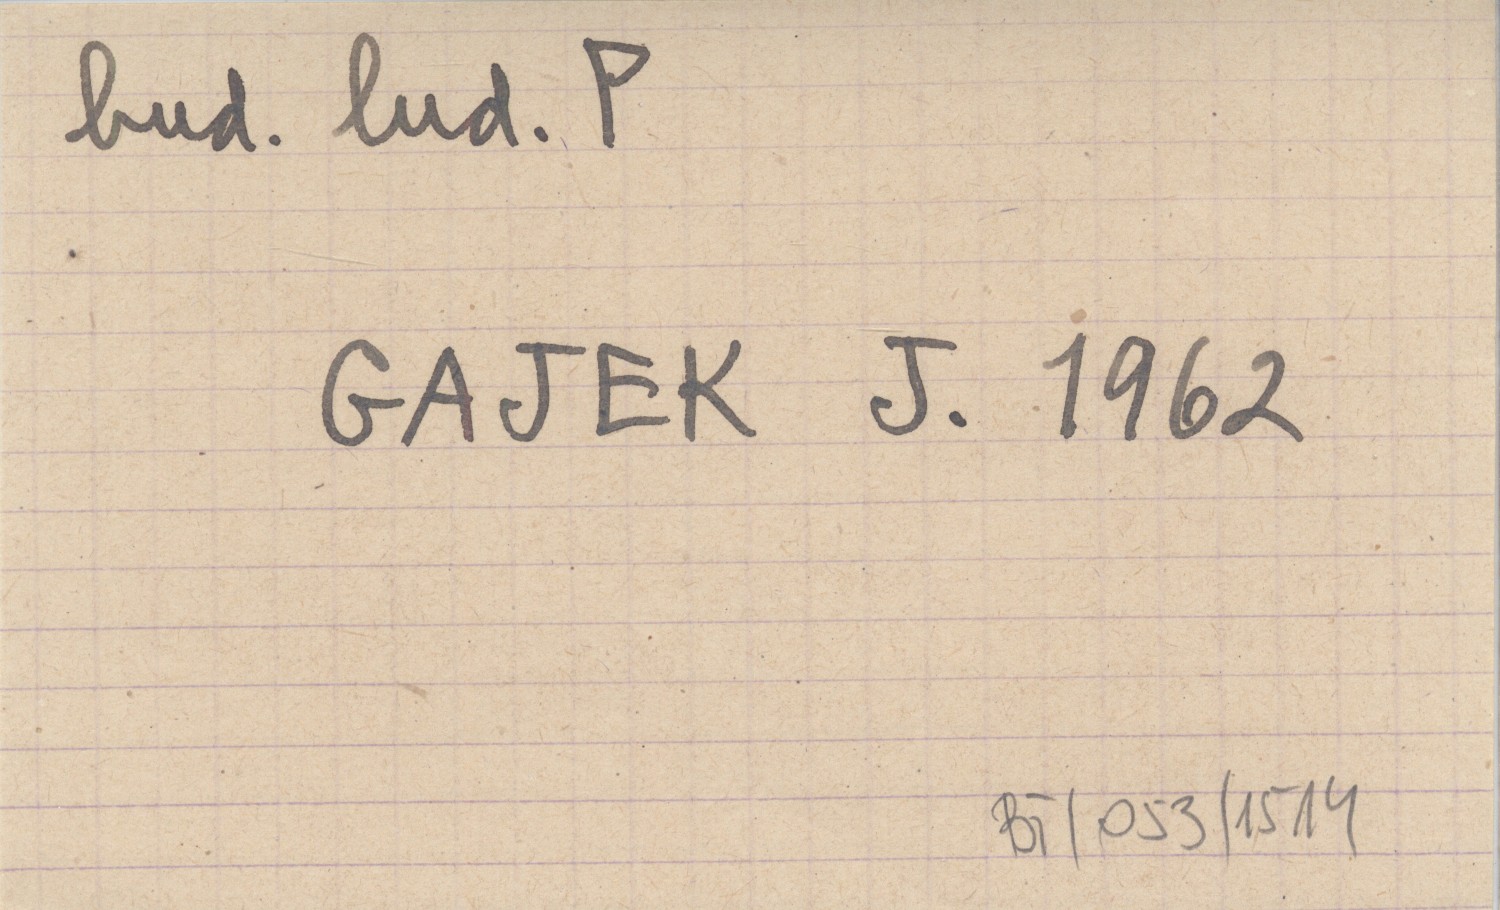 bud. lud. P
GAJEK J. 1962
BT/053/1514